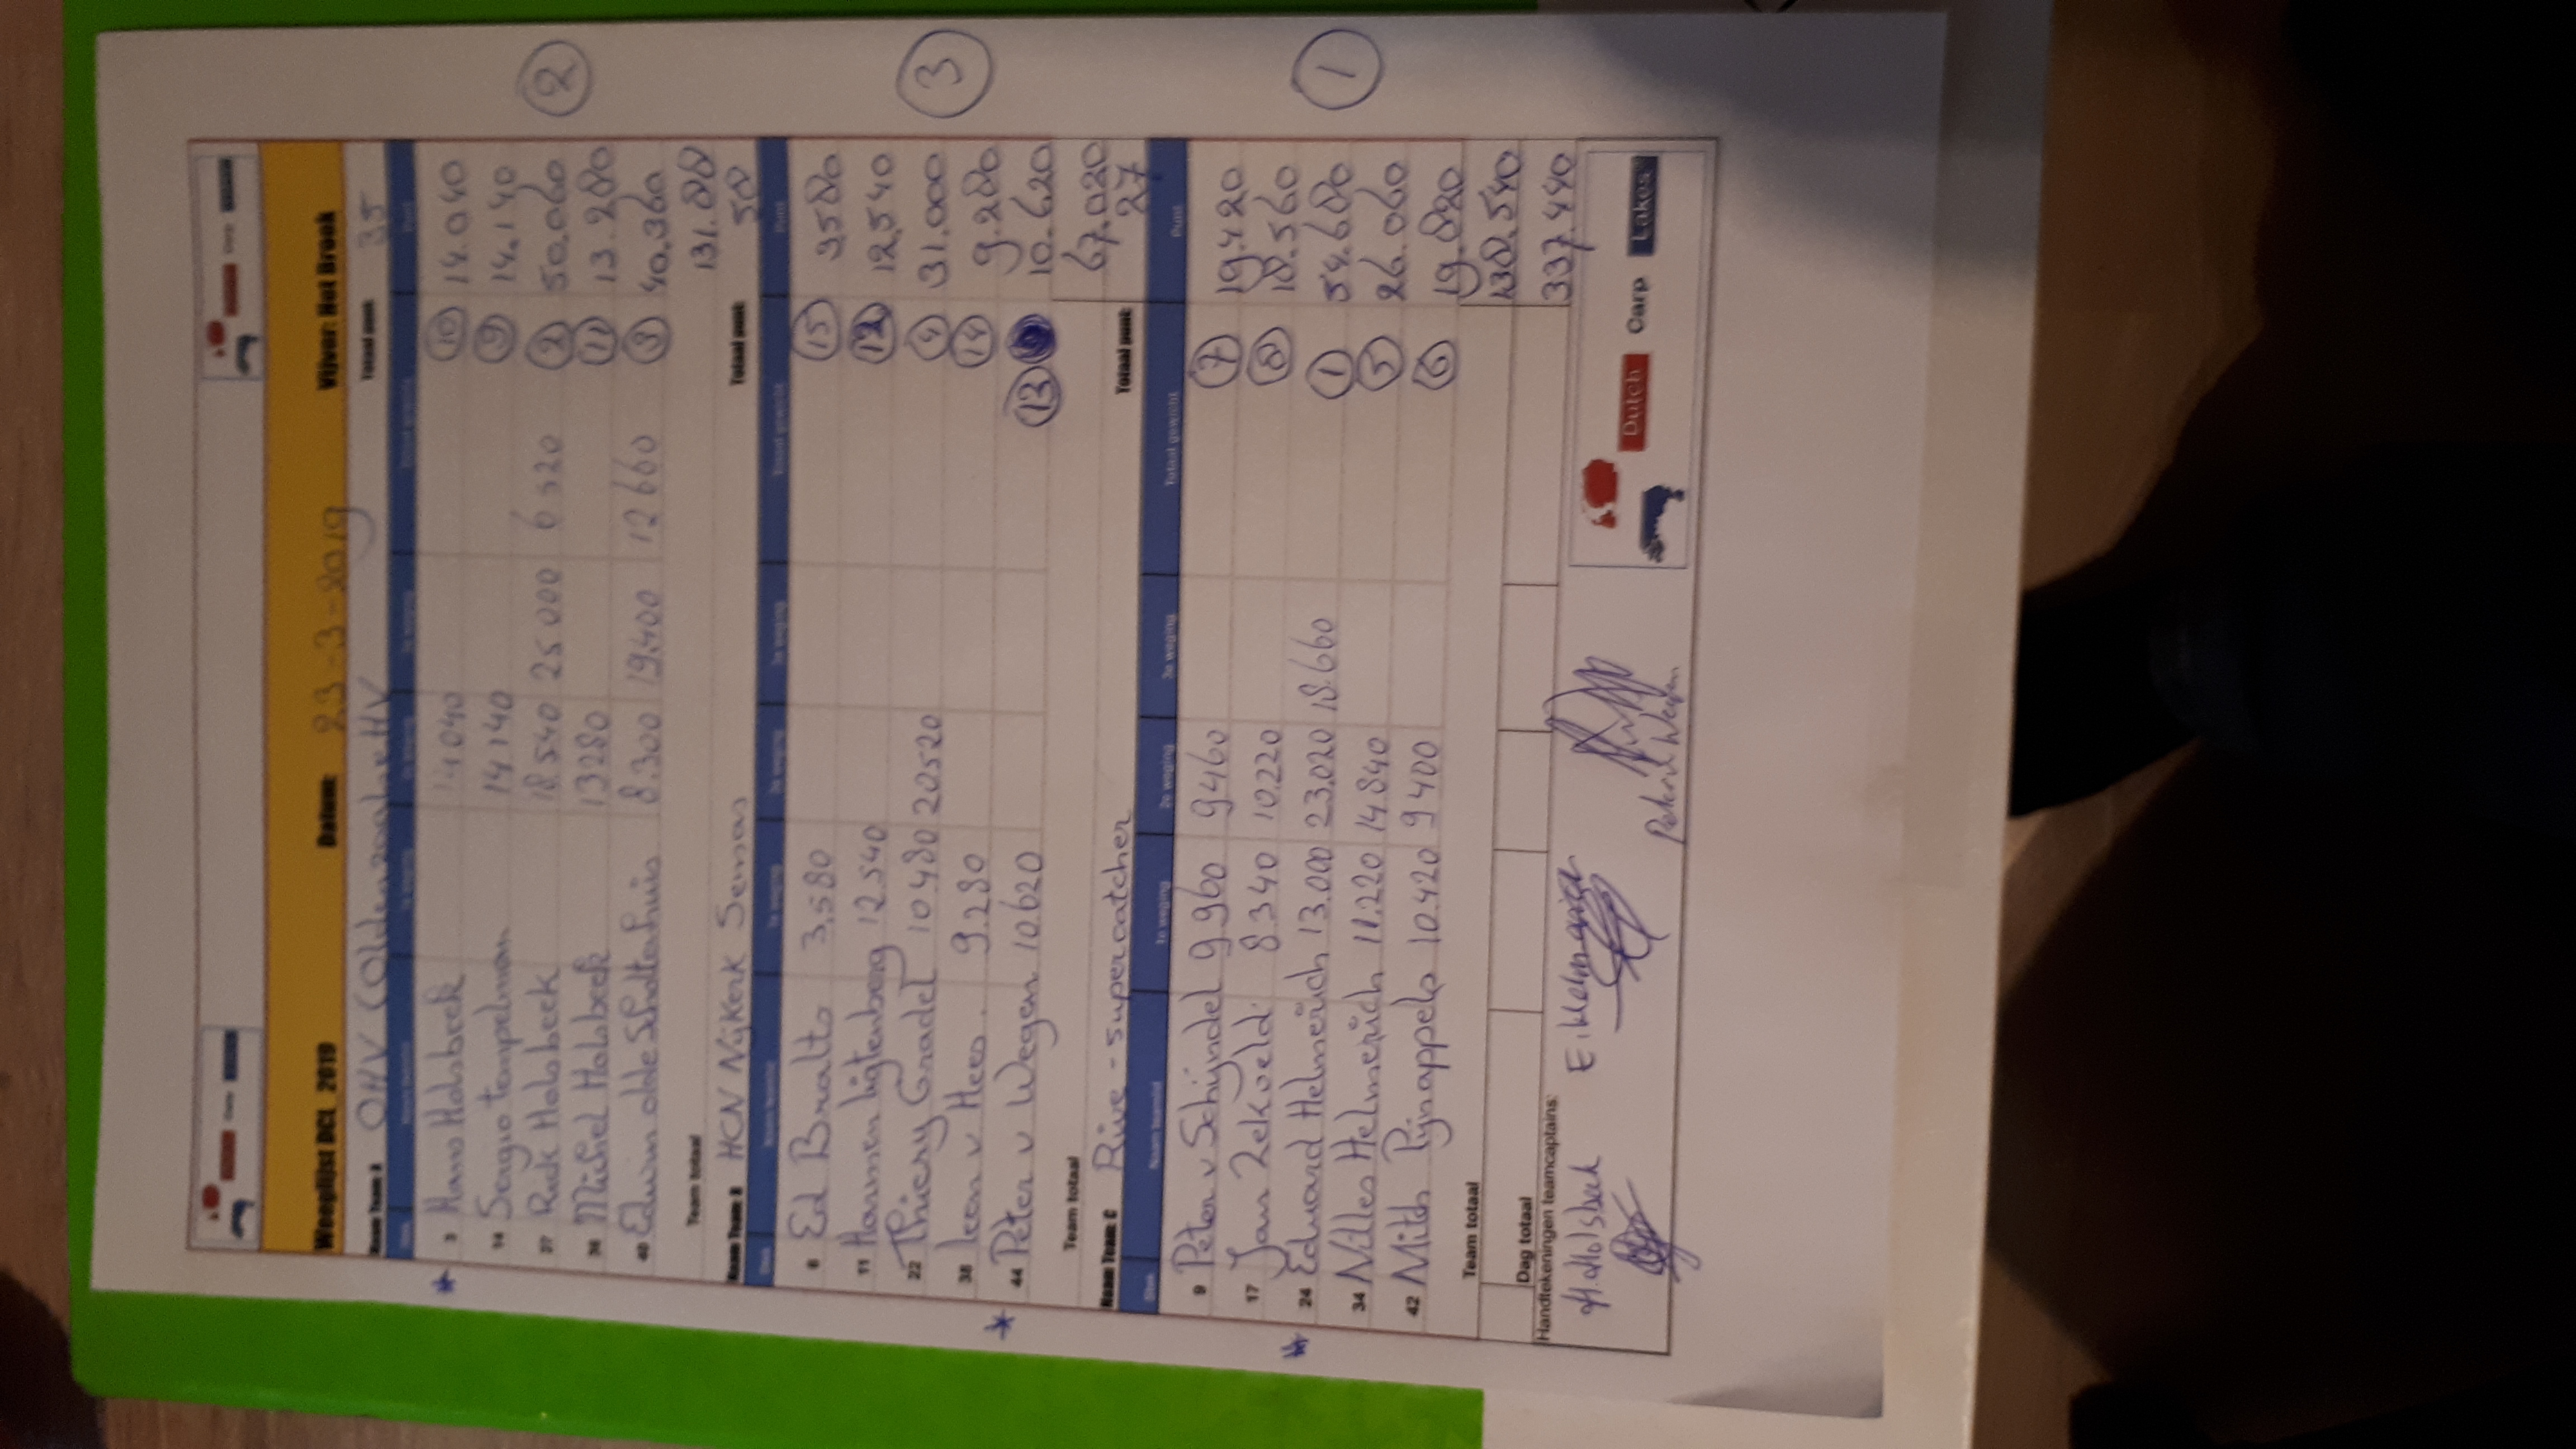 Weeglijst DCL 2019 Datum: 23-3-2019 Vijver: Het Broek
Naam Team A OHV (Oldenzaalse HV Totaal punt 35
3 Hans Holsbeek 14040 10 14.040
14 Sergio tempelman 14140 9 14.140
27 Rick Holsbeek 18.540 25000 6520 2 50.060
36 Michel Holsbeek 13280 11 13.280
40 Edwin olde Scholtenhuis 8.300 19.400 12660 3 40.360
Team totaal 131.88
Naam Team B HCN Nijkerk Sensas Totaal punt 58
Totaal gewicht Punt
6 Ed Bralts 3,580 15 3,580
11 Harmen ligtenberg 12.540 12 12,540
22 Thiery Gradel 10 480 20520 4 31.000
38 leon v Hees. 9.280 14 9.280
44 Peter v Wegen 10.620 13 10.620
Team totaal 67.020
Naam Team C Rive - supercatcher Totaal punt 27
Stek Naam teamlid 1e weging 2e weging 3e weging Totaal gewicht Punt
9 Peter v Schijndel 9 960 9460 7 19.420
17 Jan Zekveld 8.340 10.220 8 18.560
24 Edward Helmerich 13.000 23.020 18.660 1 54.680
34 Nilles Helmerich 11.220 14.840 5 26.060
42 Mitch Pijnappels 10.420 9 400 6 19.820
Team totaal 138.540
Dag totaal 337.440
Handtekeningen teamcaptains:
H. Holsbeek
Peter v Wegen
Dutch Carp Lakes
2
3
1